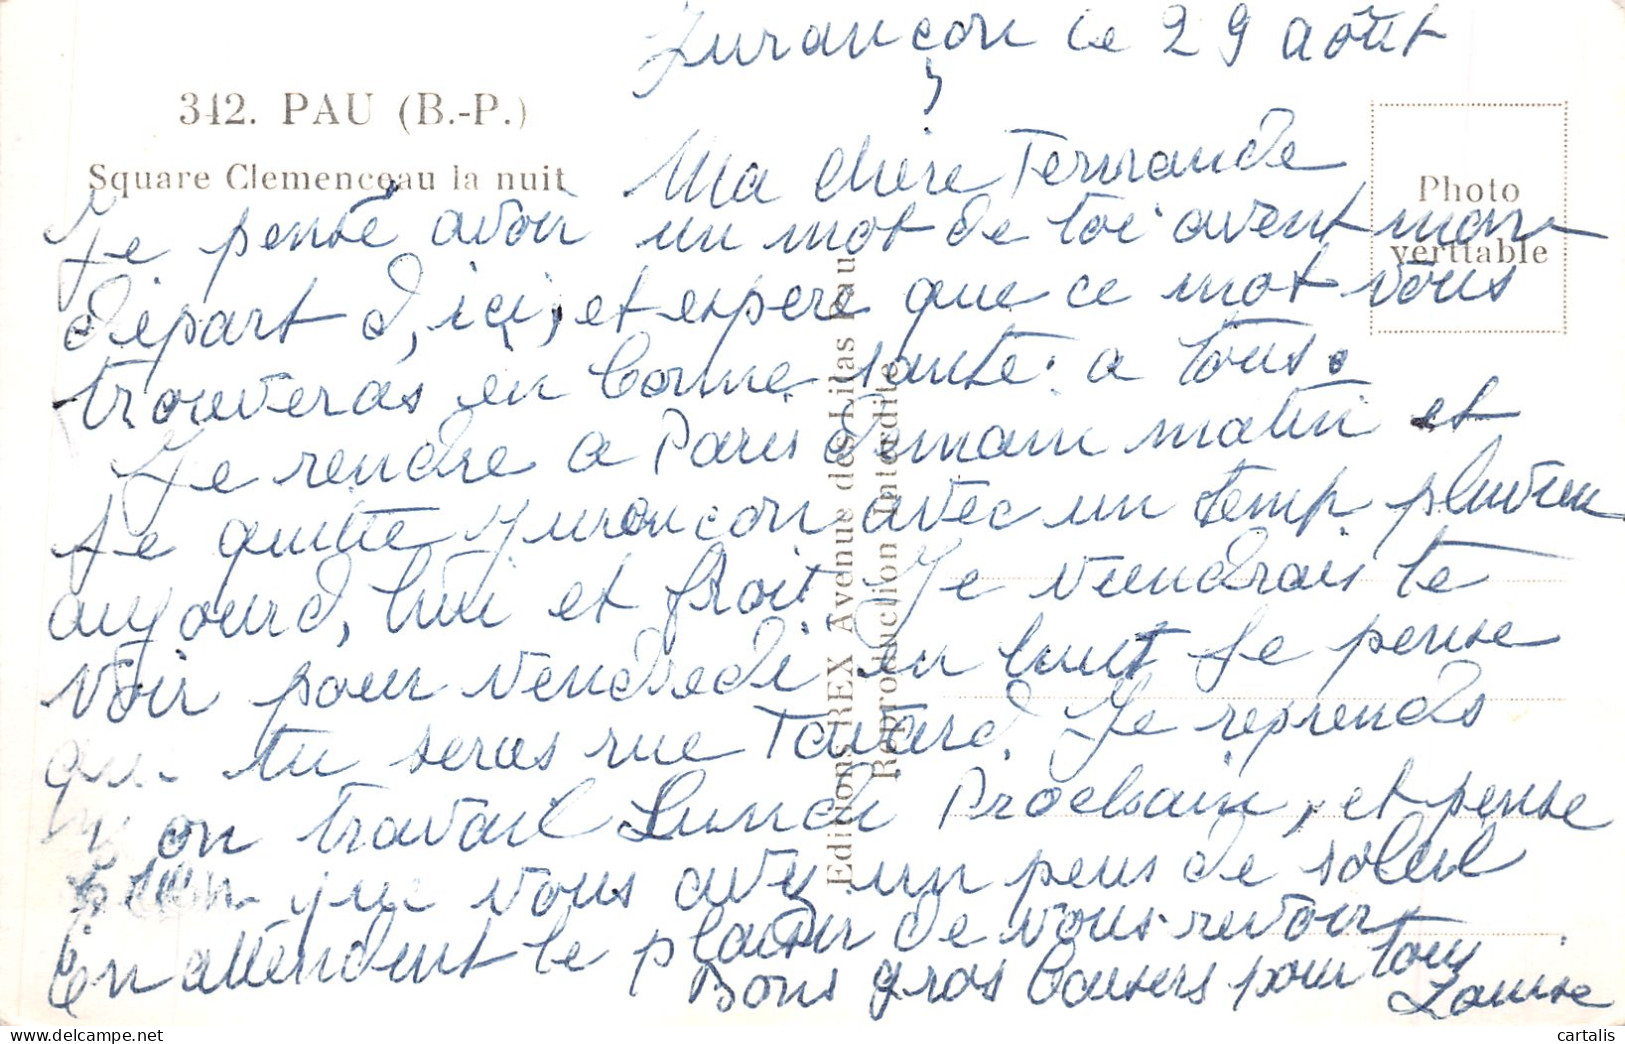 Jurançon le 29 août
342. PAU (B.-P.)
Square Clemenceau la nuit
Photo
vérttable
Ma chère Fernande
Je pense avoir un mot de toi avent mon
départ d, ici, et espere que ce mot vous
trouveras en bonne sante. a tous.
Je rendre a Paris demain matin et
Je quitte Jurançon avec un temp pluvieu
aujourd, hui et froit. Je viendrais te
voir pour vendredi en huit Je pense
que tu seras rue Tavard. Je reprends
on travail Lundi Prochain, et pense
que vous avez un peus de soleil
En attendent le plaisir de vous revoir
Bons gros baisers pour tous
Louise
Editions REX Avenue des Lilas Pau
Reproduction Interdite
cartalis